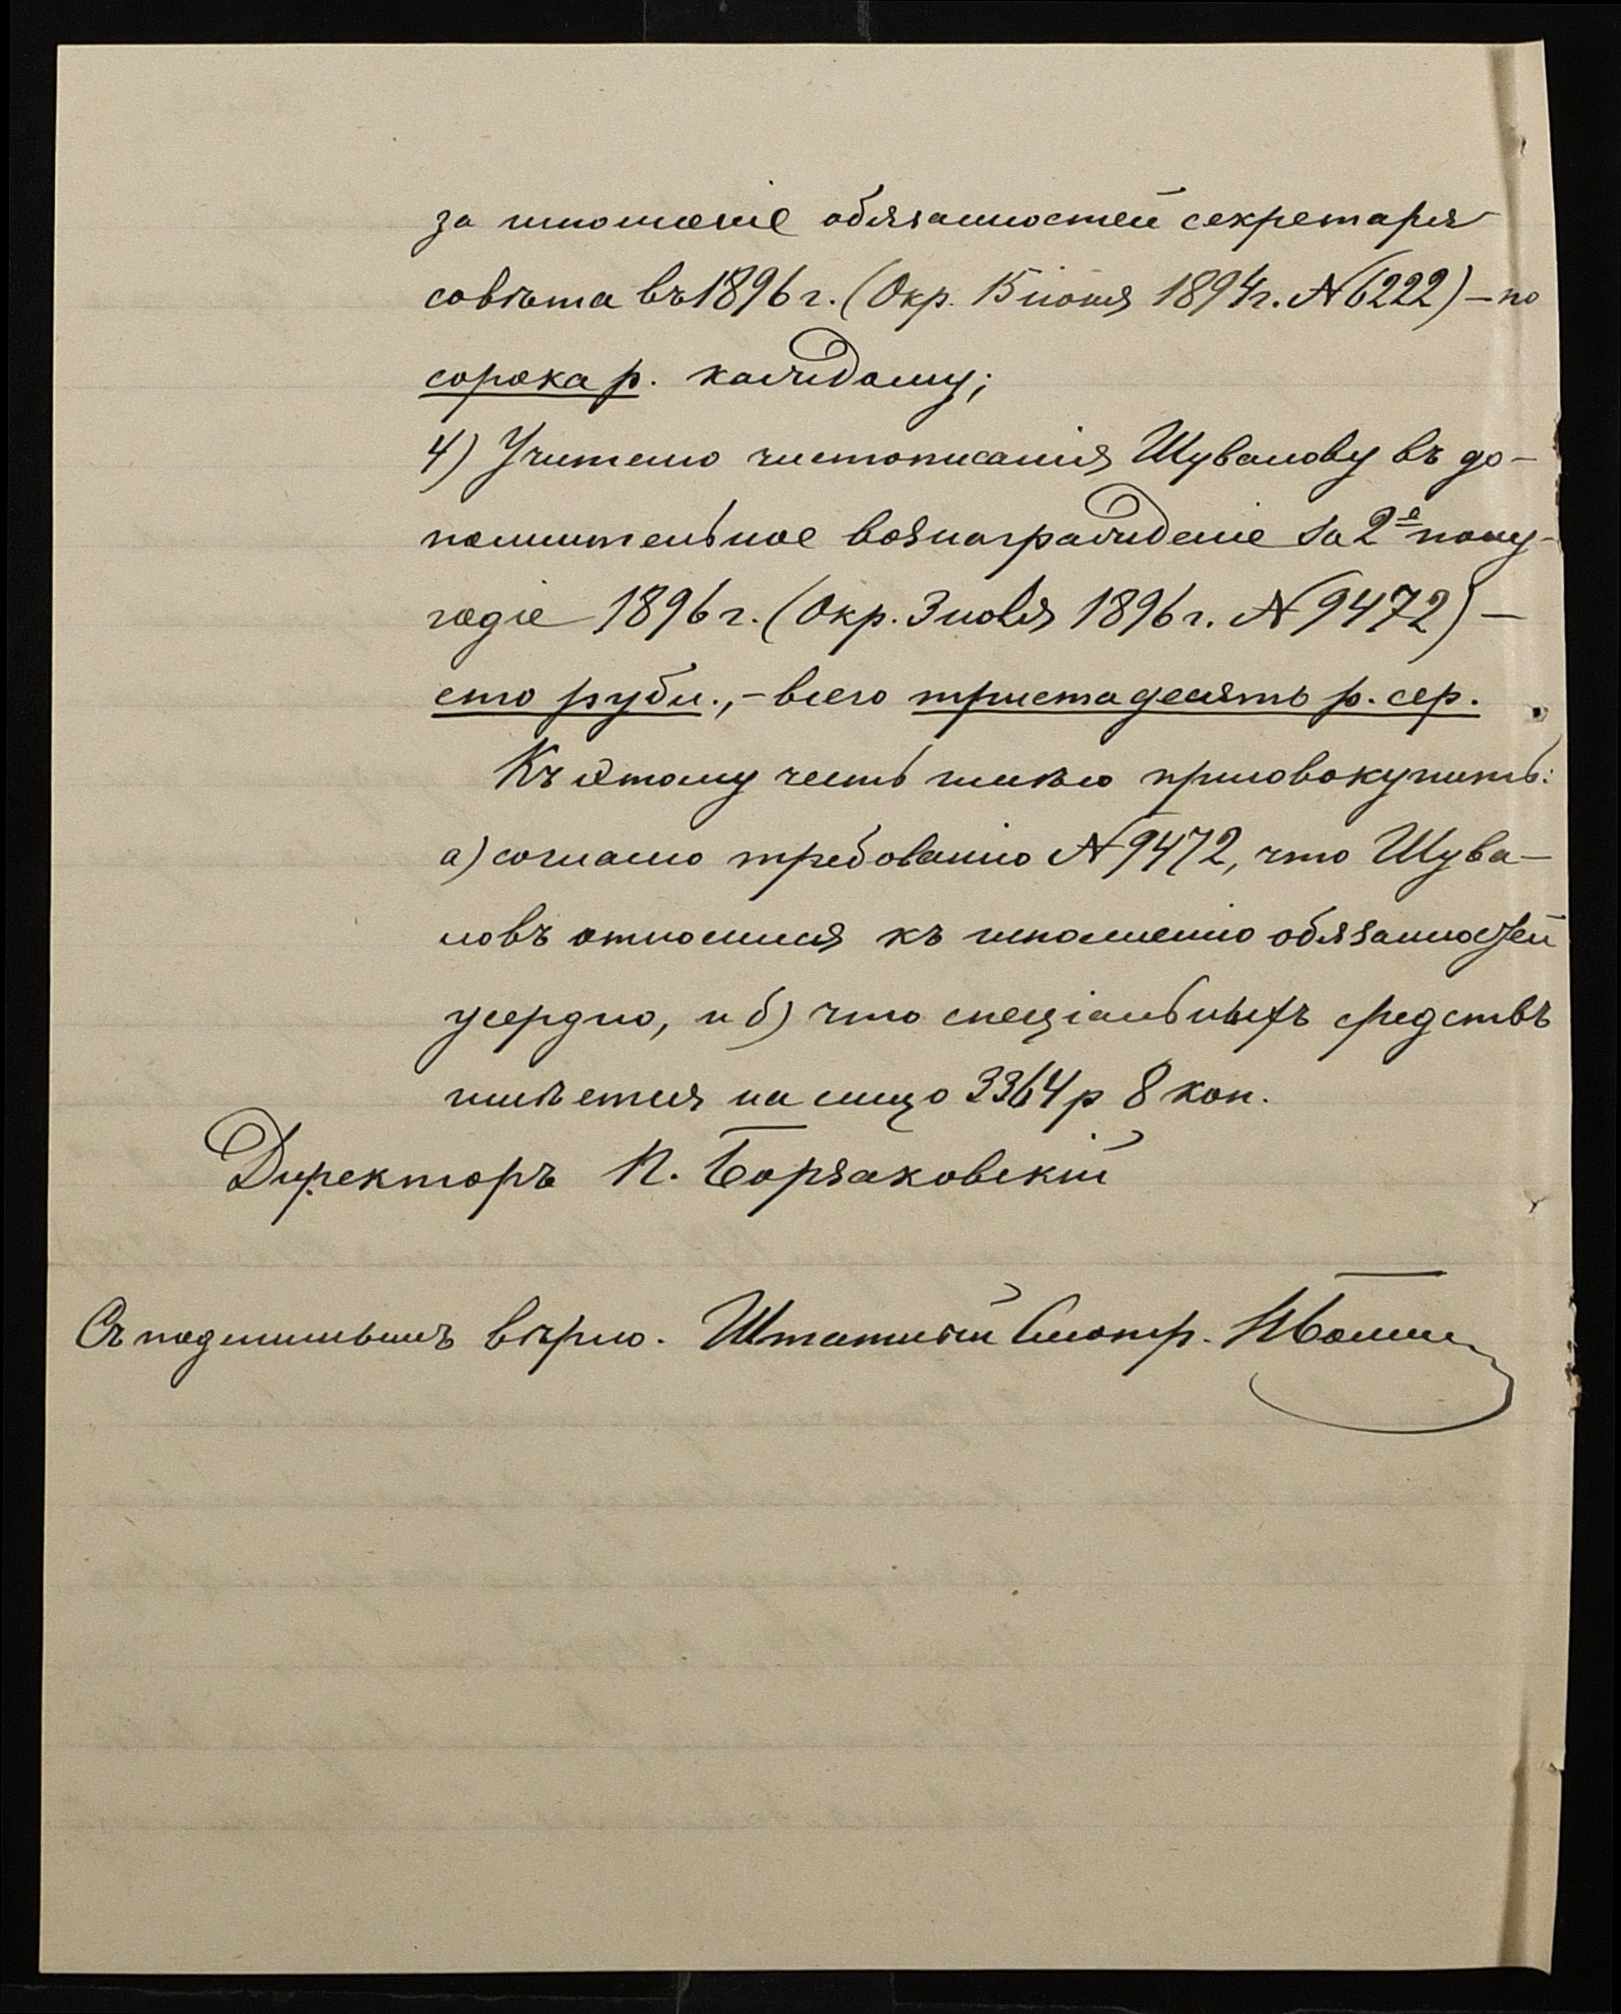 за исполненіе обязанностей секретаря
совѣта въ 1896 г. (Окр. 15 іюня 1894 г. № 6222) – по
сорока р. каждому;
4) Учителю чистописанія Шувалову въ до-
полнительное вознагражденіе за 2е полу-
годіе 1896 г. (Окр. 3 июля 1896 г. № 9472) –
сто рубл., – всего триста десять р. сер.
Къ этому честь имѣю присовокупить:
а) согласно требованію № 9472, что Шува-
ловъ относился къ исполненію обязанностей
усердно, и б) что спеціальныхъ средствъ
имѣется на лицо 3364 р 8 коп.
Директоръ П. Борзаковскій
Съ подлиннымъ вѣрно. Штатный Смотр.